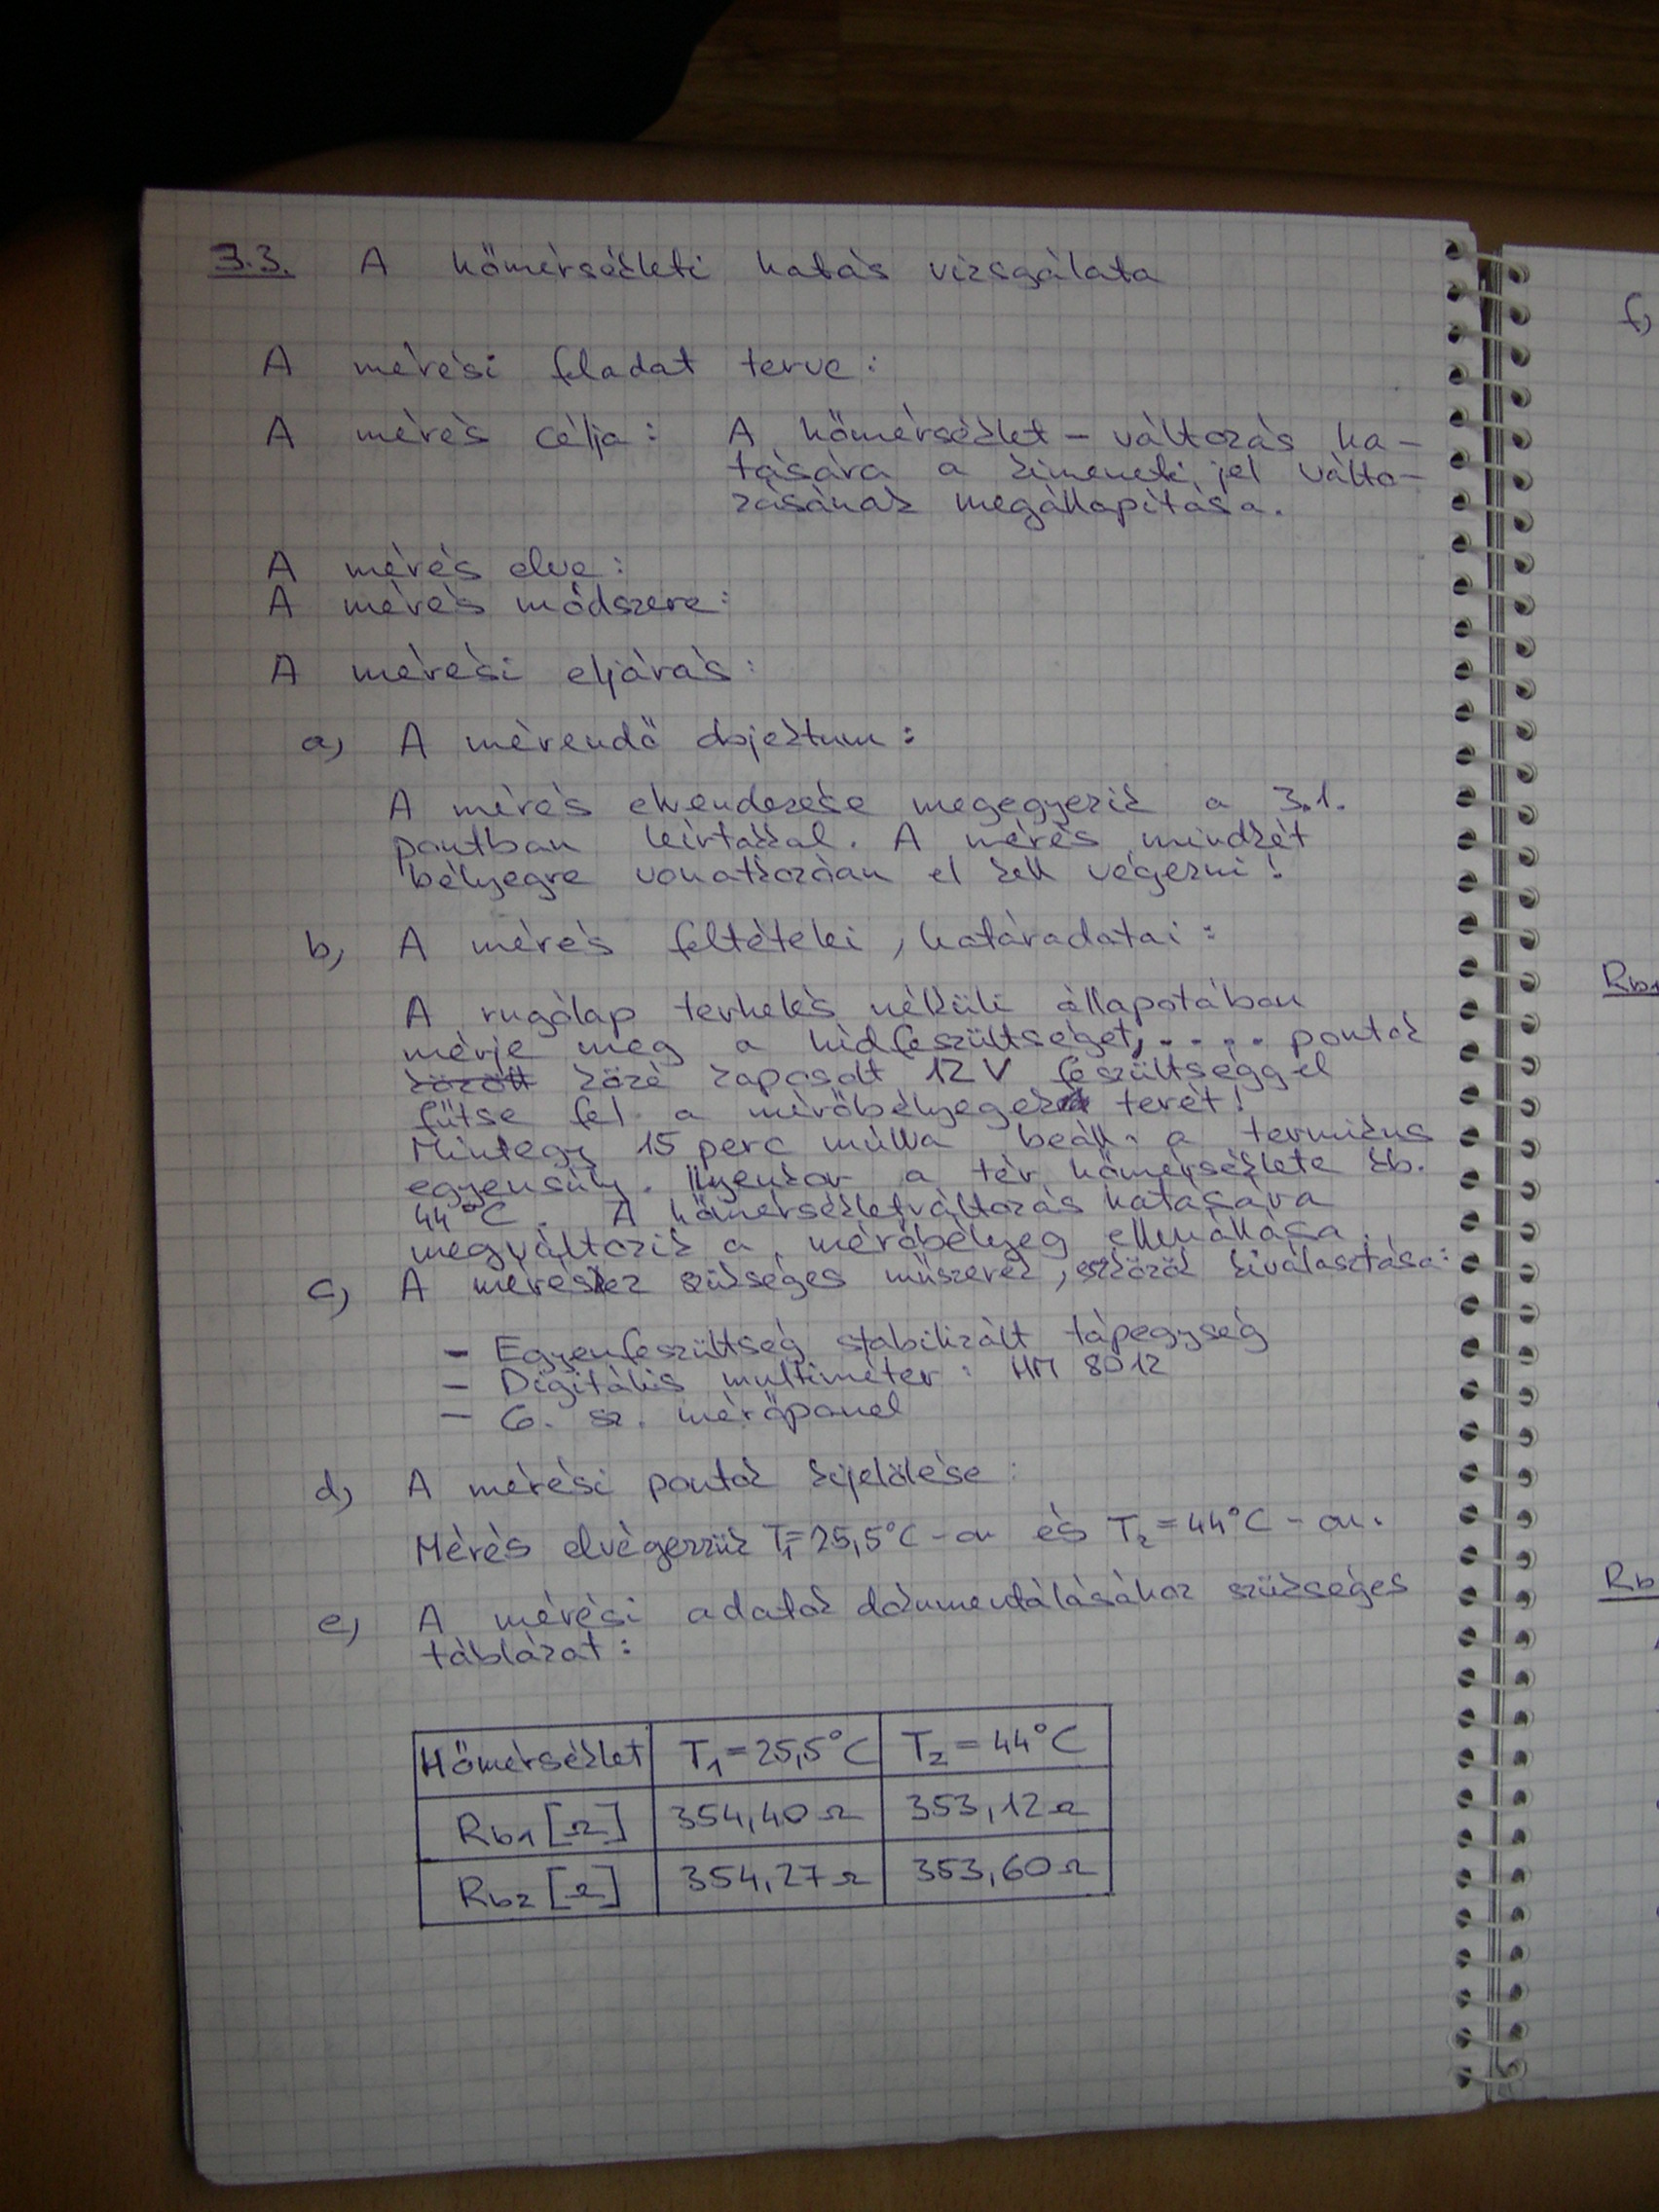 3.3. A hőmérsékleti hatás vizsgálata
A mérési feladat terve:
A mérés célja: A hőmérséklet-változás ha-
tására a kimeneti jel válto-
zásának megállapítása.
A mérés elve:
A mérés módszere:
A mérési eljárás:
a, A mérendő objektum:
A mérés elrendezése megegyezik a 3.1.
pontban leírtakkal. A mérés mindkét
bélyegre vonatkozóan el kell végezni!
b, A mérés feltételei, határadatai:
A rugólap terhelés nélküli állapotában
mérje meg a hídfeszültséget, . . . . pontok
között közé kapcsolt 12 V feszültséggel
fűtse fel a mérőbélyegek terét!
Mintegy 15 perc múlva beáll a termikus
egyensúly. Ilyenkor a tér hőmérséklete kb.
44°C. A hőmérsékletváltozás hatására
megváltozik a mérőbélyeg ellenállása.
c, A méréshez szükséges műszerek, eszközök kiválasztása:
- Egyenfeszültség stabilizált tápegység
- Digitális multiméter: HM 8012
- 6. sz. mérőpanel
d, A mérési pontok kijelölése:
Mérés elvégezzük T₁=25,5°C-on és T₂=44°C-on.
e, A mérési adatok dokumentálásához szükséges
táblázat:
Hőmérséklet T₁=25,5°C T₂=44°C
Rb1 [Ω] 354,40Ω 353,12Ω
Rb2 [Ω] 354,27Ω 353,60Ω
f,
Rb1
Rb